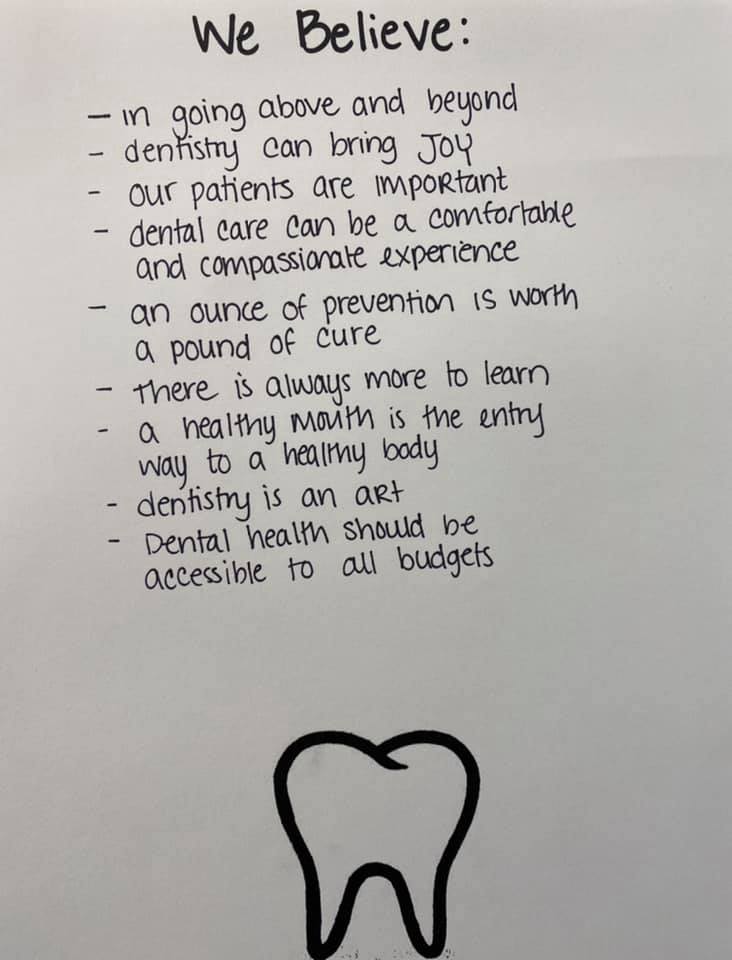 We Believe:
– in going above and beyond
- dentistry can bring JOY
- our patients are IMPORtant
- dental care can be a comfortable
and compassionate experience
- an ounce of prevention is worth
a pound of cure
- there is always more to learn
- a healthy mouth is the entry
way to a healthy body
- dentistry is an ARt
- Dental health should be
accessible to all budgets